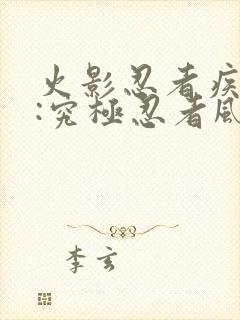 火影忍者疾
:究極忍者風
李玄